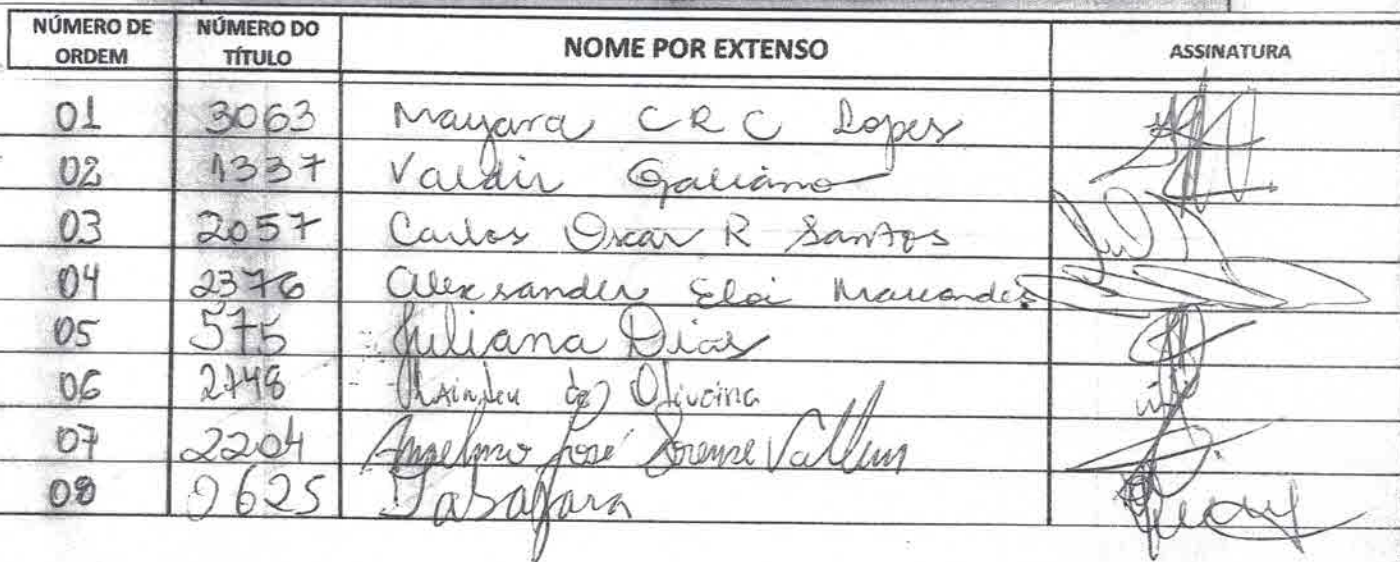 NÚMERO DE ORDEM NÚMERO DO TÍTULO NOME POR EXTENSO ASSINATURA
01 3063 Mayara C R C Lopes
02 1337 Valdir Galiano
03 2057 Carlos Oscar R Santos
04 2376 Alexsander Eloi
05 575 Juliana Dias
06 2748 de Oliveira
07 2204 Anselmo José
08 0625